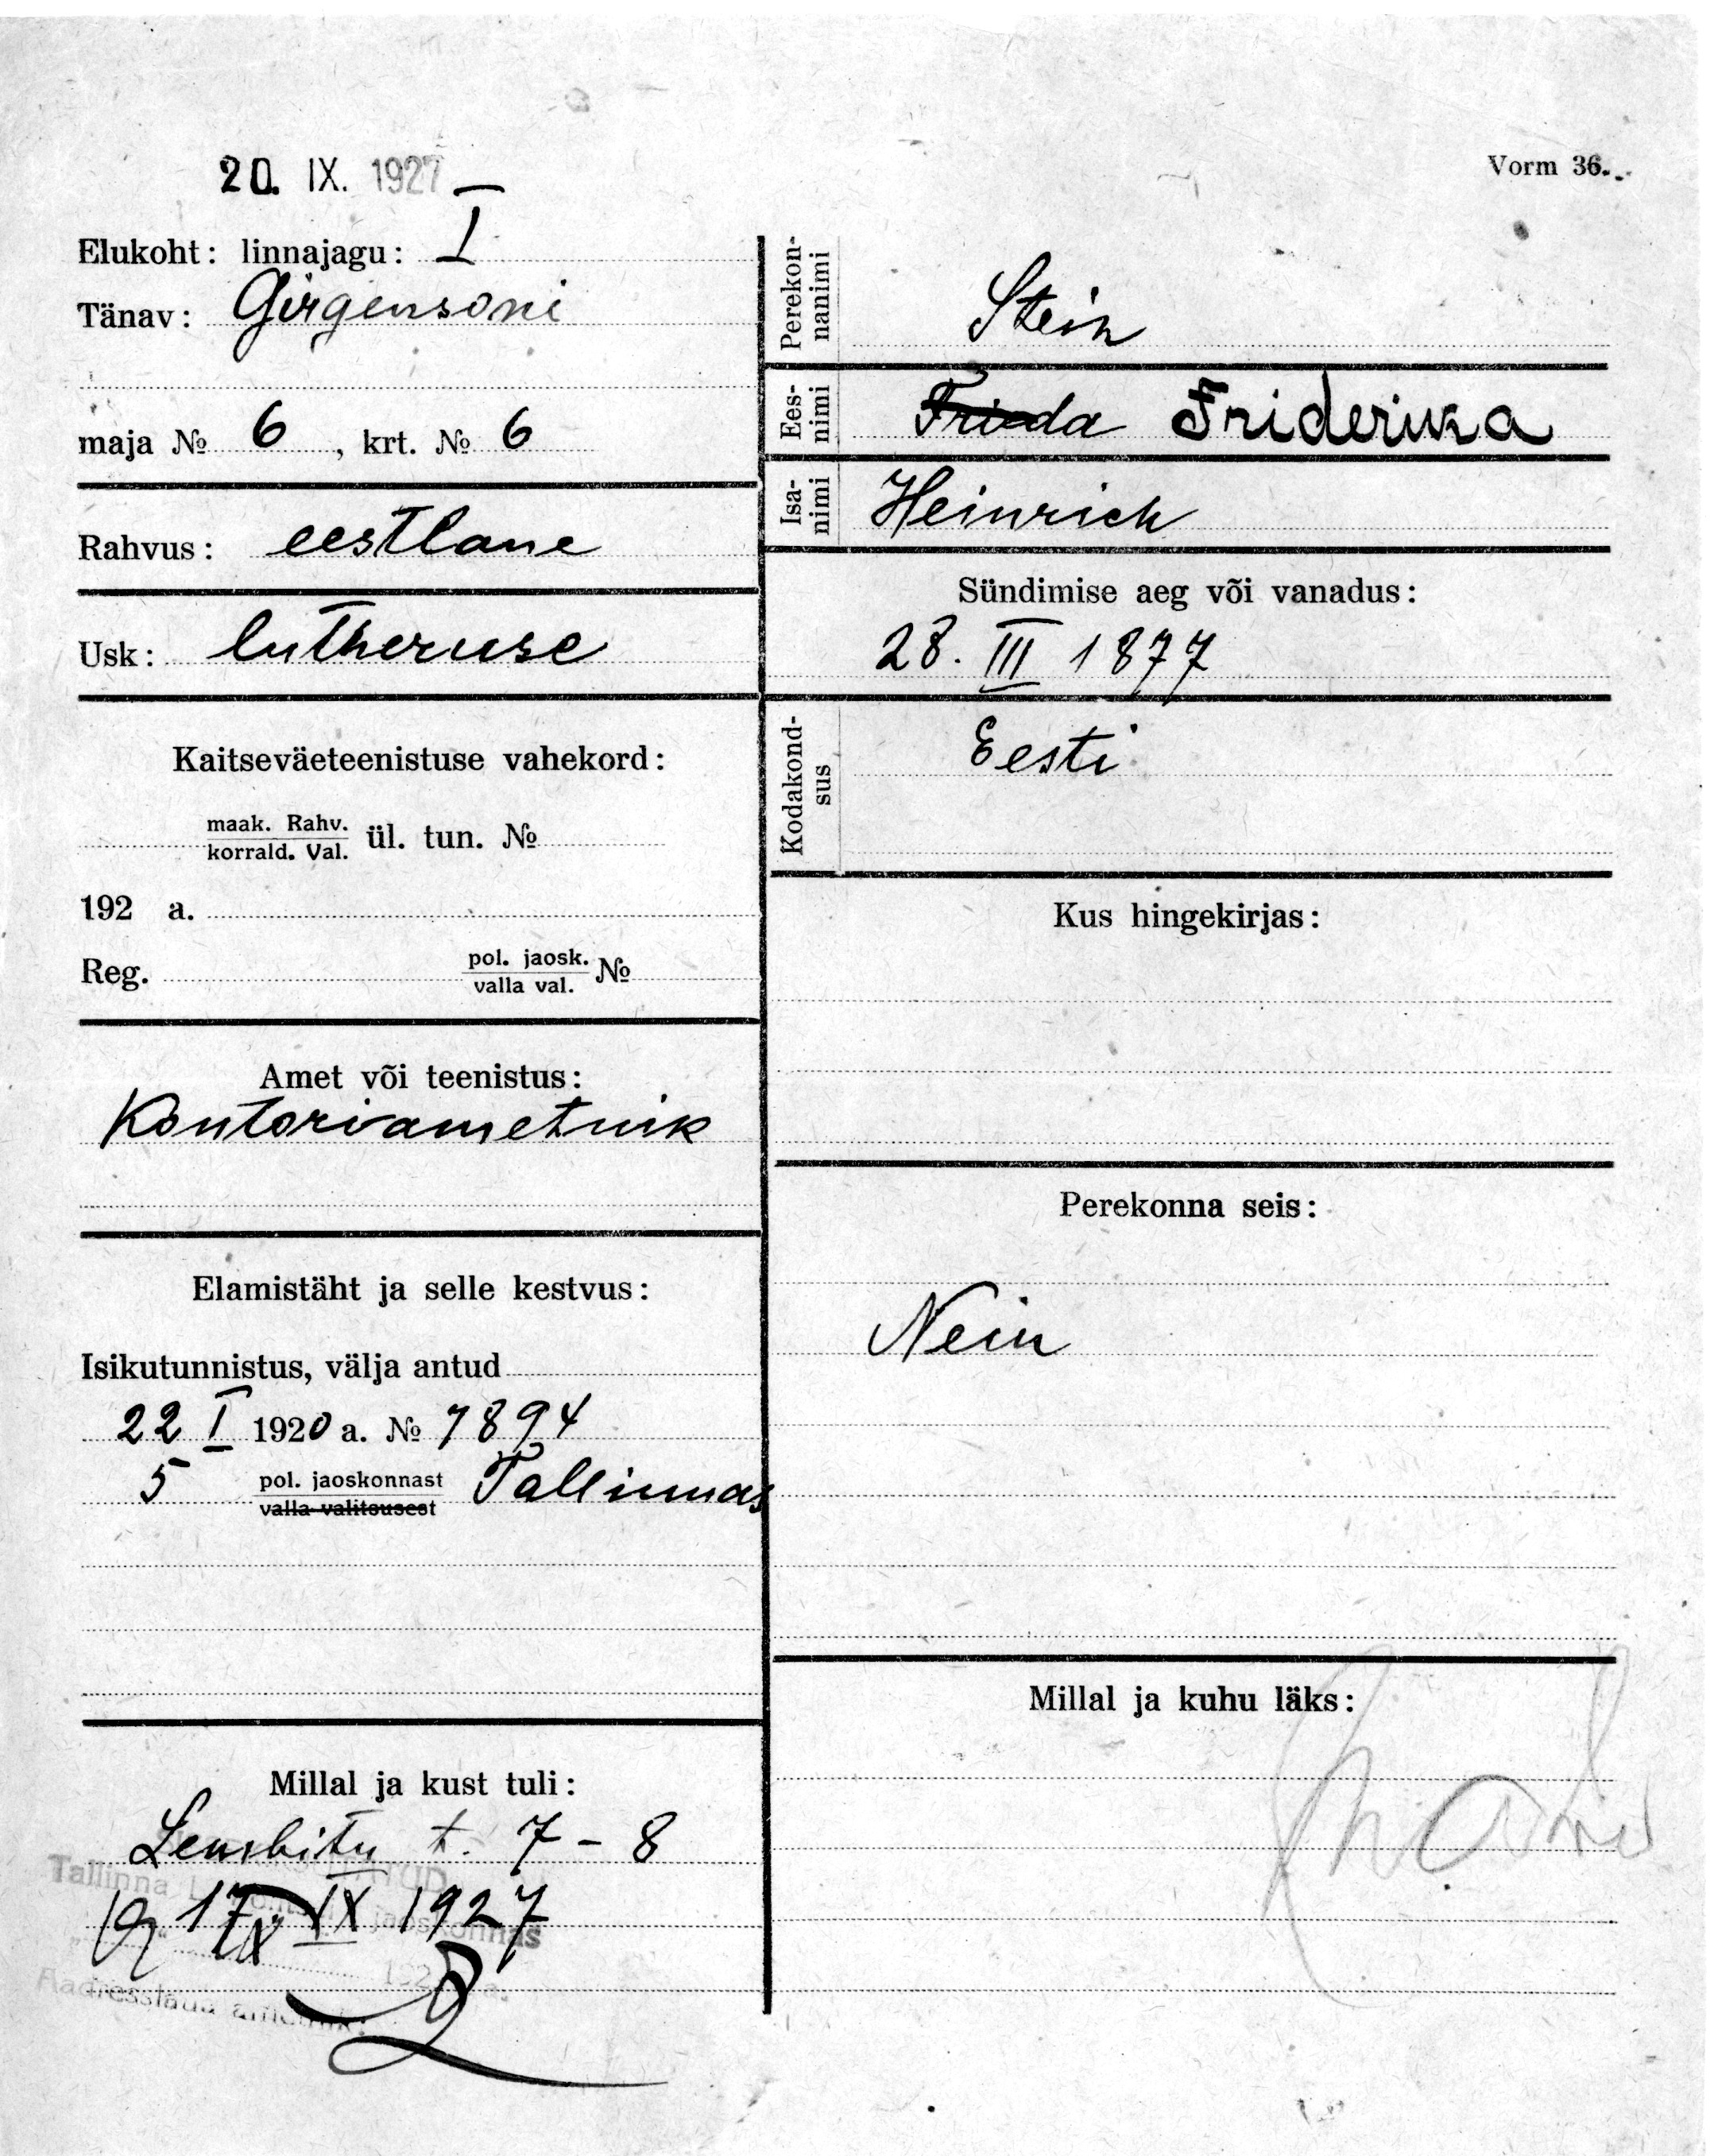 20. IX. 1927
Vorm 36.
Elukoht: linnajagu: I
Tänav: Girgensoni
maja № 6, krt. № 6
Rahvus: eestlane
Usk: lutheruse
Kaitseväeteenistuse vahekord:
maak. Rahv.
korrald. Val. ül. tun. №
192 a.
Reg. pol. jaosk. №
valla val.
Amet või teenistus:
Kontoriametnik
Elamistäht ja selle kestvus:
Isikutunnistus, välja antud
22 I 1920 a. № 7894
5 pol. jaoskonnast Tallinnas
valla valitsusest
Millal ja kust tuli:
Lembitu t. 7 - 8
17 IX 1927
Tallinna
jaoskonnas
Aadresslaua ametnik:
Perekon-
nanimi
Stein
Ees-
nimi
Frieda Friderika
Isa-
nimi
Heinrich
Sündimise aeg või vanadus:
28. III 1877
Kodakond-
sus
Eesti
Kus hingekirjas:
Perekonna seis:
Nein
Millal ja kuhu läks: